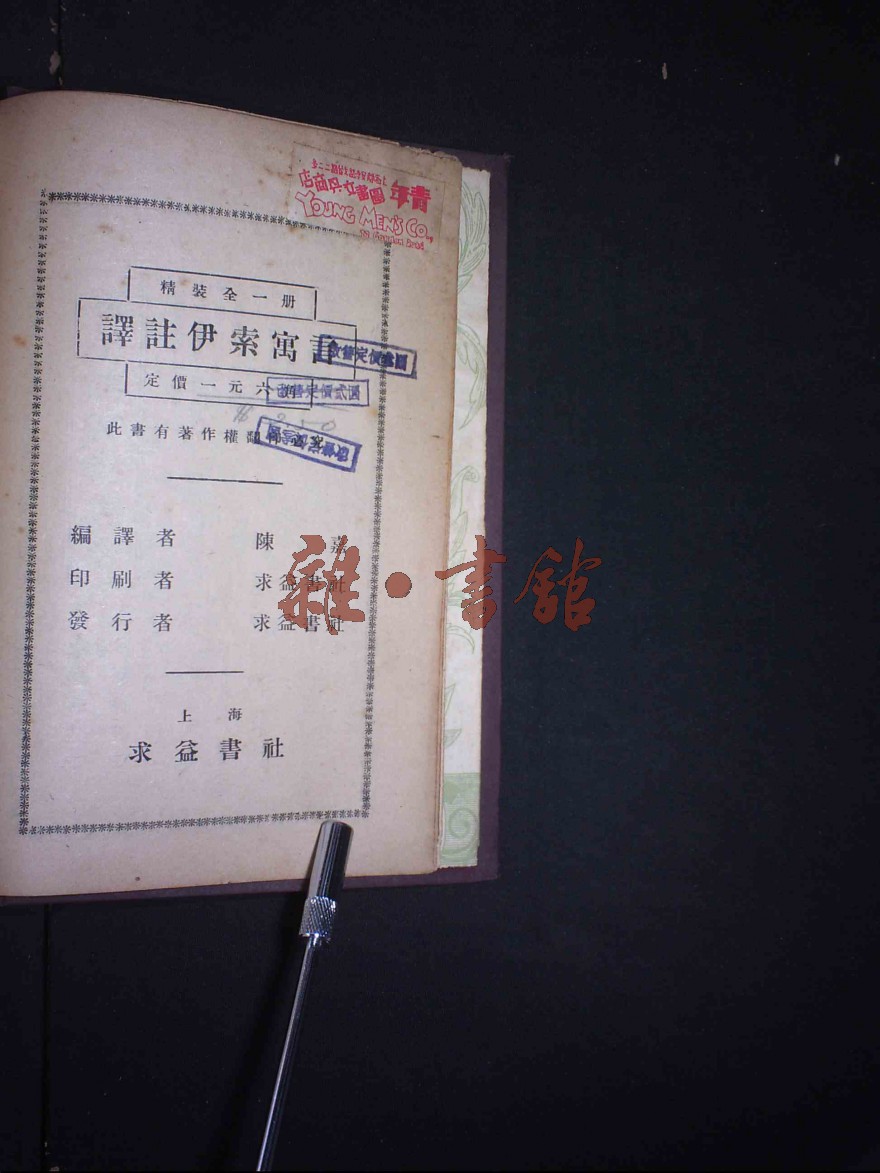 青年 圖書文具商店
YOUNG MEN'S CO.,
精裝全一册
譯註伊索寓言
改售定價
定價一元六角
改售定價弍圓
此書有著作權翻印必究
編譯者 陳嘉
印刷者 求益書社
發行者 求益書社
雜·書館
上海
求益書社